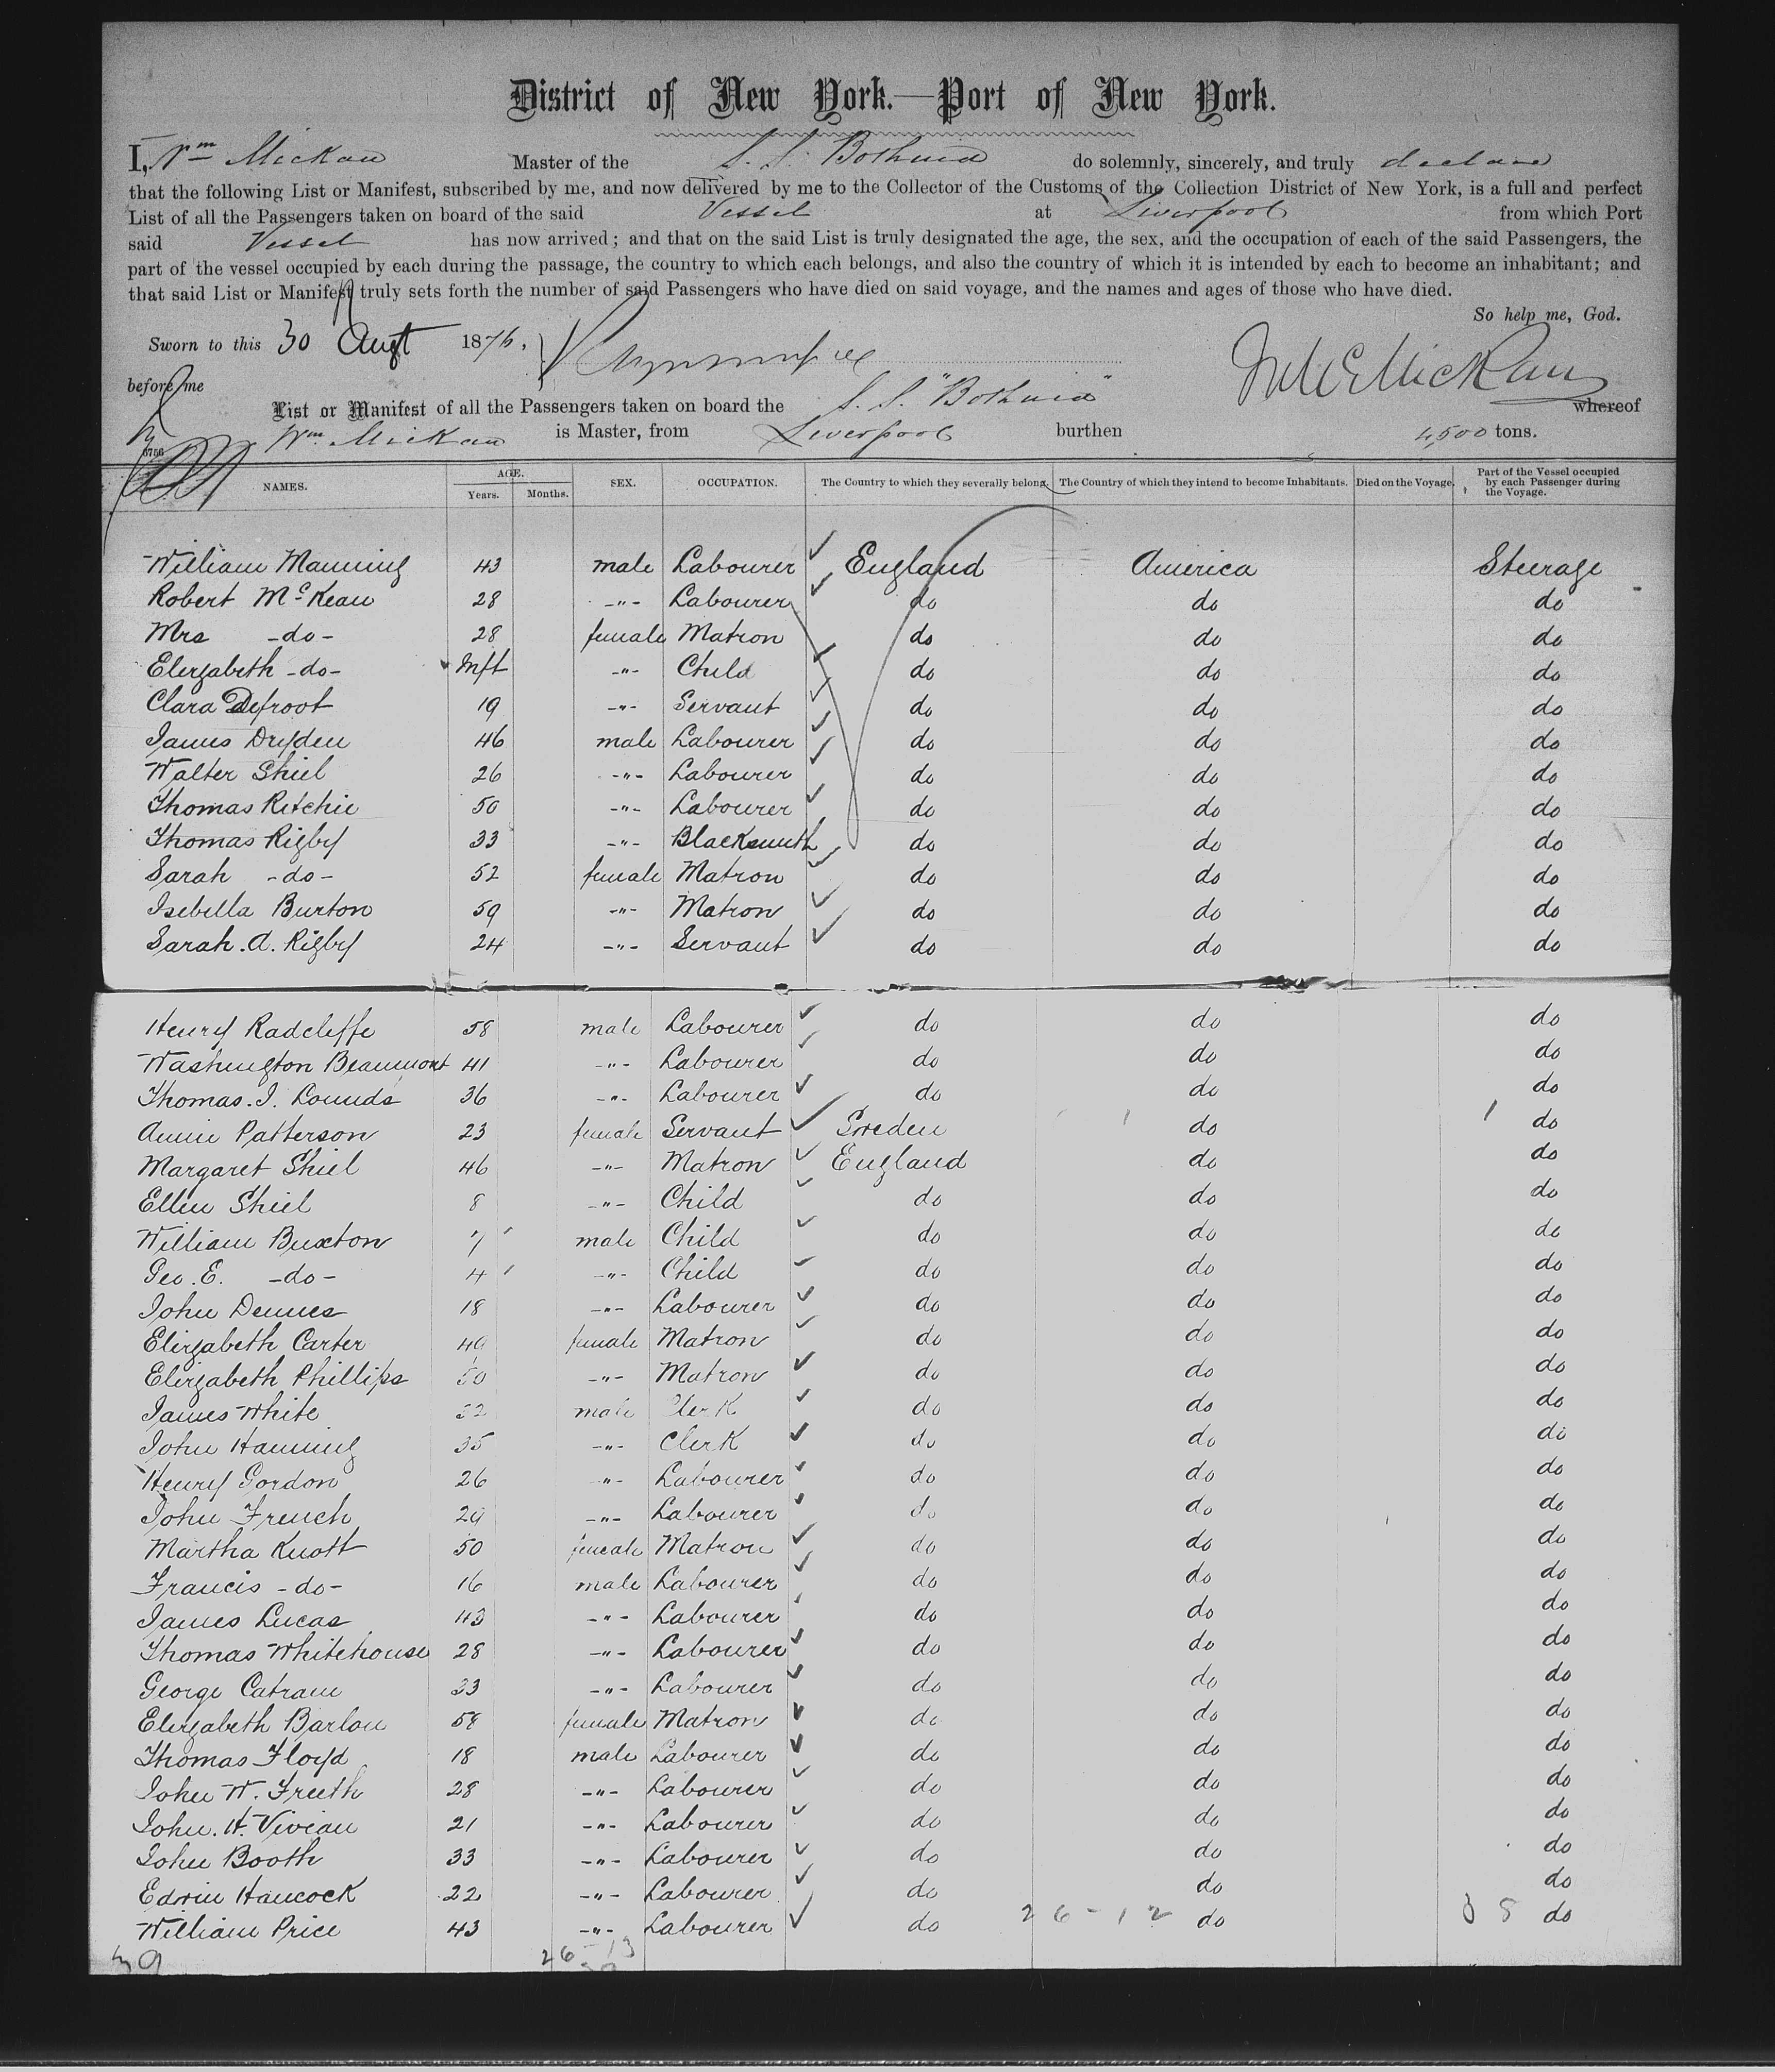 District of New York.—Port of New York.
I, Wm Mickan Master of the S. S. Bothnia do solemnly, sincerely, and truly declare
that the following List or Manifest, subscribed by me, and now delivered by me to the Collector of the Customs of the Collection District of New York, is a full and perfect
List of all the Passengers taken on board of the said Vessel at Liverpool from which Port
said Vessel has now arrived; and that on the said List is truly designated the age, the sex, and the occupation of each of the said Passengers, the
part of the vessel occupied by each during the passage, the country to which each belongs, and also the country of which it is intended by each to become an inhabitant; and
that said List or Manifest truly sets forth the number of said Passengers who have died on said voyage, and the names and ages of those who have died.
So help me, God.
Sworn to this 30 Augt 1876,
before me
List or Manifest of all the Passengers taken on board the S. S. "Bothnia" whereof
Wm. Mickan is Master, from Liverpool burthen 4,500 tons.
NAMES. AGE. Years. Months. SEX. OCCUPATION. The Country to which they severally belong. The Country of which they intend to become Inhabitants. Died on the Voyage. Part of the Vessel occupied by each Passenger during the Voyage.
William Manning 43 male Labourer England America Steerage
Robert McKean 28 -"- Labourer do do do
Mrs -do- 28 female Matron do do do
Elizabeth -do- Inft -"- Child do do do
Clara Defroot 19 -"- Servant do do do
James Dryden 46 male Labourer do do do
Walter Shiel 26 -"- Labourer do do do
Thomas Ritchie 50 -"- Labourer do do do
Thomas Rigby 33 -"- Blacksmith do do do
Sarah -do- 52 female Matron do do do
Isebella Burton 59 -"- Matron do do do
Sarah. A. Rigby 24 -"- Servant do do do
Henry Radcliffe 58 male Labourer do do do
Washington Beaumont 41 -"- Labourer do do do
Thomas. I. Lounds 36 -"- Labourer do do do
Annie Patterson 23 female Servant Sweden do do
Margaret Shiel 46 -"- Matron England do do
Ellen Shiel 8 -"- Child do do do
William Buxton 7 male Child do do do
Geo. E. -do- 4 -"- Child do do do
John Dennes 18 -"- Labourer do do do
Elizabeth Carter 49 female Matron do do do
Elizabeth Phillips 50 -"- Matron do do do
James White male Clerk do do do
John Hanning 35 -"- Clerk do do do
Henry Gordon 26 -"- Labourer do do do
John French 29 -"- Labourer do do do
Martha Knott 50 female Matron do do do
Francis -do- 16 male Labourer do do do
James Lucas 43 -"- Labourer do do do
Thomas Whitehouse 28 -"- Labourer do do do
George Catram 33 -"- Labourer do do do
Elizabeth Barlow 58 female Matron do do do
Thomas Floyd 18 male Labourer do do do
John W. Freeth 28 -"- Labourer do do do
John. H. Vivian 21 -"- Labourer do do do
John Booth 33 -"- Labourer do do do
Edwin Hancock 22 -"- Labourer do do do
William Price 43 -"- Labourer do 26-12 do do
39 26-13